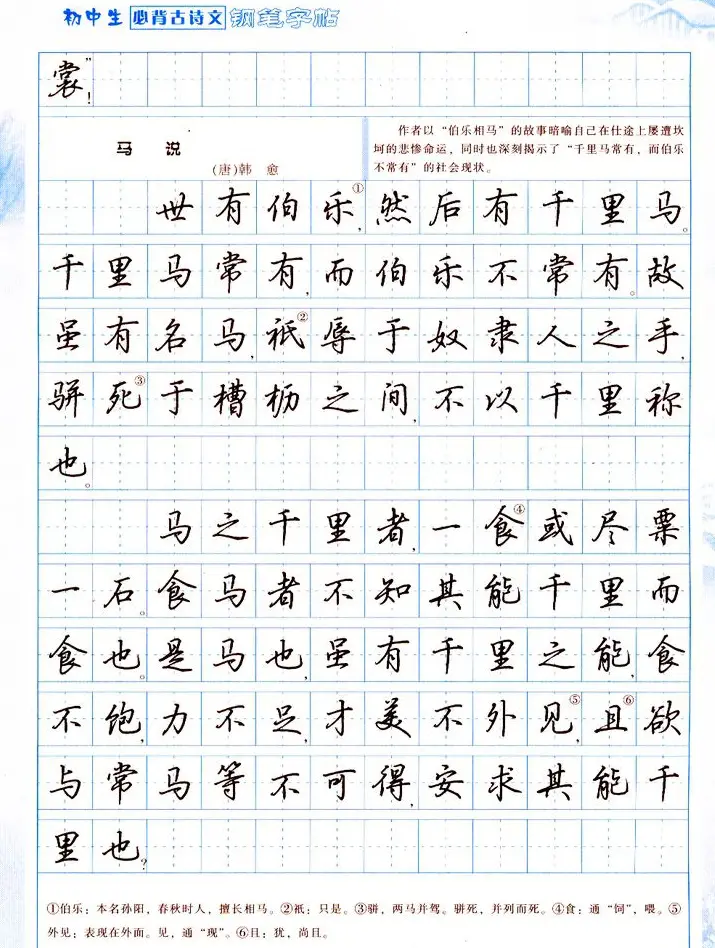 初中生 必背古诗文 钢笔字帖
裳”!
马 说
(唐)韩 愈
作者以“伯乐相马”的故事暗喻自己在仕途上屡遭坎
坷的悲惨命运,同时也深刻揭示了“千里马常有,而伯乐
不常有”的社会现状。
世有伯乐①,然后有千里马。
千里马常有,而伯乐不常有。故
虽有名马,祇②辱于奴隶人之手,
骈死③于槽枥之间,不以千里称
也。
马之千里者,一食④或尽粟
一石。食马者不知其能千里而
食也。是马也,虽有千里之能,食
不饱,力不足,才美不外见⑤,且⑥欲
与常马等不可得,安求其能千
里也?
①伯乐:本名孙阳,春秋时人,擅长相马。②祇:只是。③骈,两马并驾。骈死,并列而死。④食:通“饲”,喂。⑤
外见:表现在外面。见,通“现”。⑥且:犹,尚且。